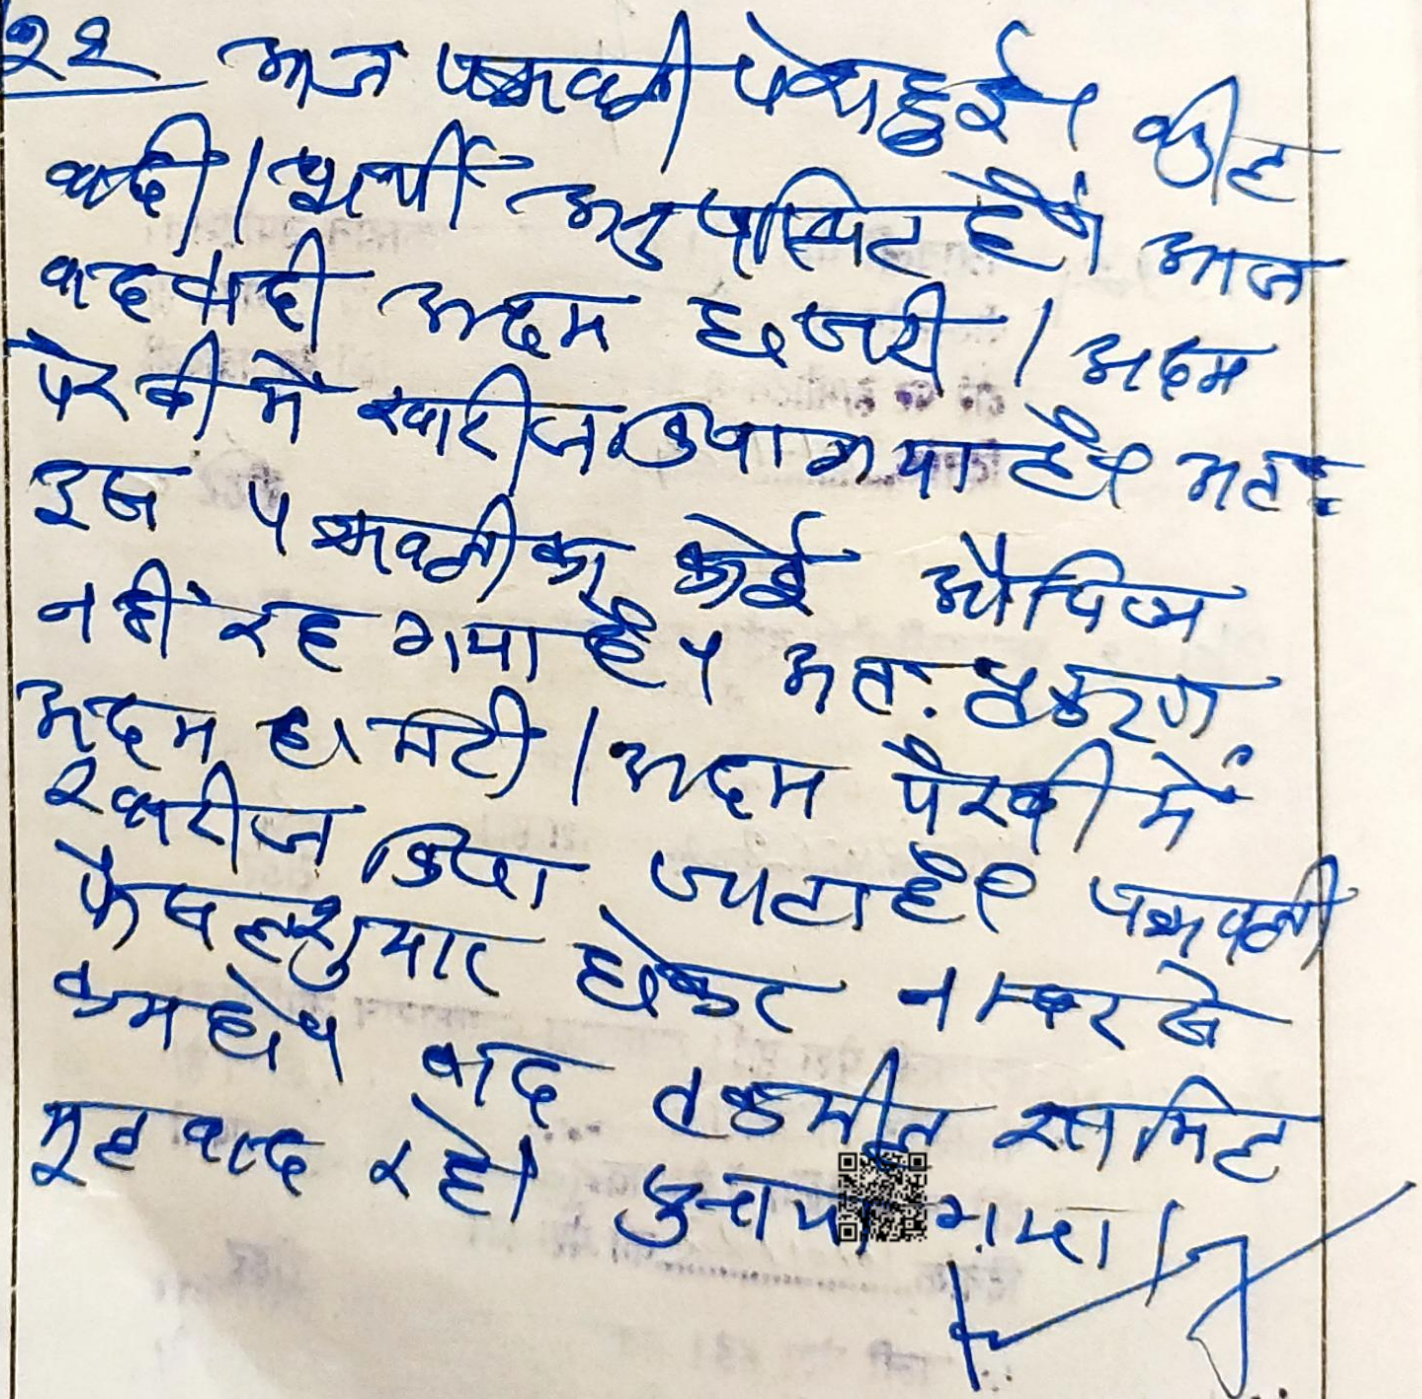 22 आज पत्रावली पेश हुई। वकील
वादी/प्रार्थी अनुपस्थित है। आज
वाद वादी अदम हाजरी / अदम
पैरवी में खारीज किया गया है। अतः
इस पत्रावली का कोई औचित्य
नहीं रह गया है। अतः प्रकरण
अदम हाजरी / अदम पैरवी में
खारीज किया जाता है। पत्रावली
फैसलशुमार होकर नम्बर से
कम हो। बाद तकमील शामिल
मूल वाद रहे। सुनाया गया।